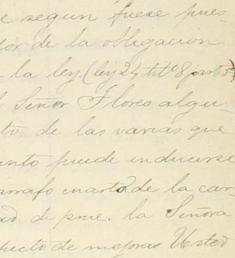 e segun fuese pues
de la obligacion
la ley (ley 24 titº 8
Señor Flores algu-
de las varias que
puede inducirse
arrafo cuarto de la car-
de pme. la Señora
pecto de mejoras Usted